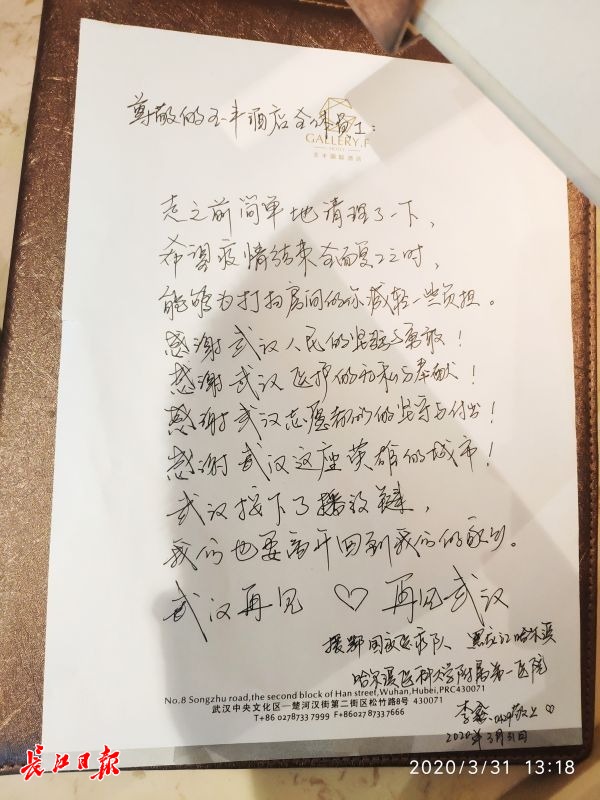 尊敬的玉丰酒店全体员工：
GALLERY.F
走之前简单地清理了一下，
希望疫情结束全面复工时，
能够为打扫房间的你减轻一些负担。
感谢武汉人民的坚强与勇敢！
感谢武汉医护的无私与奉献！
感谢武汉志愿者们的坚守与付出！
感谢武汉这座英雄的城市！
武汉按下了播放键，
我们也要离开回到我们的家乡。
武汉再见 ♡ 再见武汉
援鄂国家医疗队 黑龙江哈尔滨
哈尔滨医科大学附属第一医院
No.8 Songzhu road,the second block of Han street,Wuhan,Hubei,PRC430071
武汉中央文化区—楚河汉街第二街区松竹路8号 430071
T+86 0278733 7999 F+86027 8733 7666
李鑫 敬上 ♡
2020年3月31日
长江日报
2020/3/31 13:18